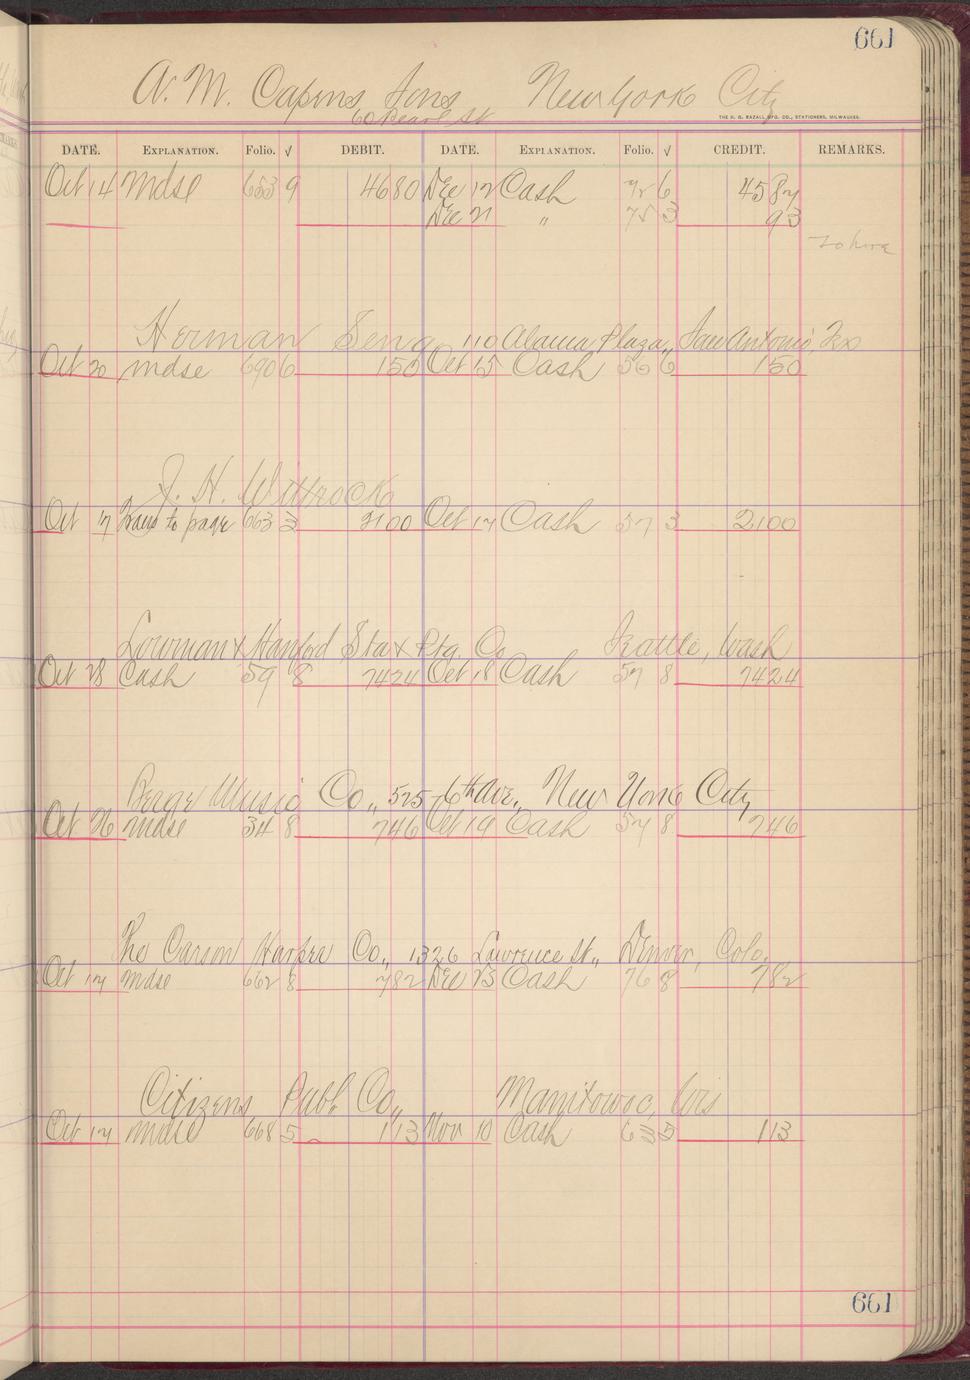 661
A. M. Capens Sons New York City
60 Pearl St
THE H. G. RAZALL MFG. CO., STATIONERS, MILWAUKEE.
DATE. EXPLANATION. Folio. √ DEBIT. DATE. EXPLANATION. Folio. √ CREDIT. REMARKS.
Oct 14 Mdse 653 9 4680 Dec 12 Cash 72 6 4587
Dec 21 " 75 3 93
Herman Seng 110 Alamo Plaza, San Antonio, Tex
Oct 20 mdse 690 6 150 Oct 15 Cash 56 6 150
J. H. Wittrock
Oct 17 Trans to page 663 3 2100 Oct 17 Cash 57 3 2100
Lowman & Hanford Sta & Ptg. Co Seattle, Wash
Oct 28 Cash 59 8 7424 Oct 18 Cash 57 8 7424
Berge Music Co., 525-6th Ave., New York City
Oct 26 mdse 34 8 746 Oct 19 Cash 57 8 746
The Carson Harper Co., 1326 Lawrence St., Denver, Colo.
Oct 17 mdse 662 8 782 Dec 23 Cash 76 8 782
Citizens Publ. Co., Manitowoc, Wis
Oct 17 mdse 668 5 113 Nov 10 Cash 63 5 113
661